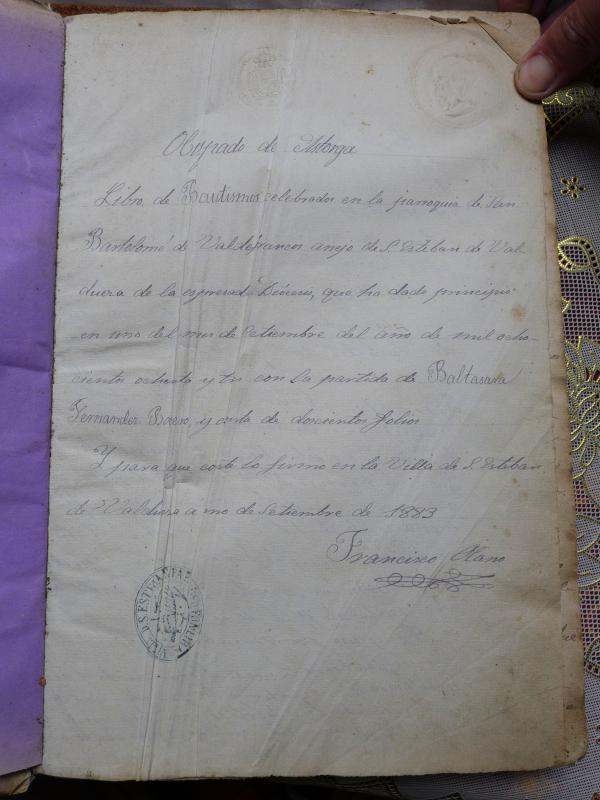 Obispado de Astorga
Libro de Bautismos celebrados en la parroquia de San
Bartolomé de Valdefrancos anejo de S. Esteban de Val-
dueza de la espresada Diócesis, que ha dado principio
en uno del mes de Setiembre del año de mil ocho-
cientos ochenta y tres con la partida de Baltasara
Fernandez y costa de doscientos folios
Y para que coste lo firmo en la Villa de S. Esteban
de Valdueza á uno de Setiembre de 1883
Francisco Olano